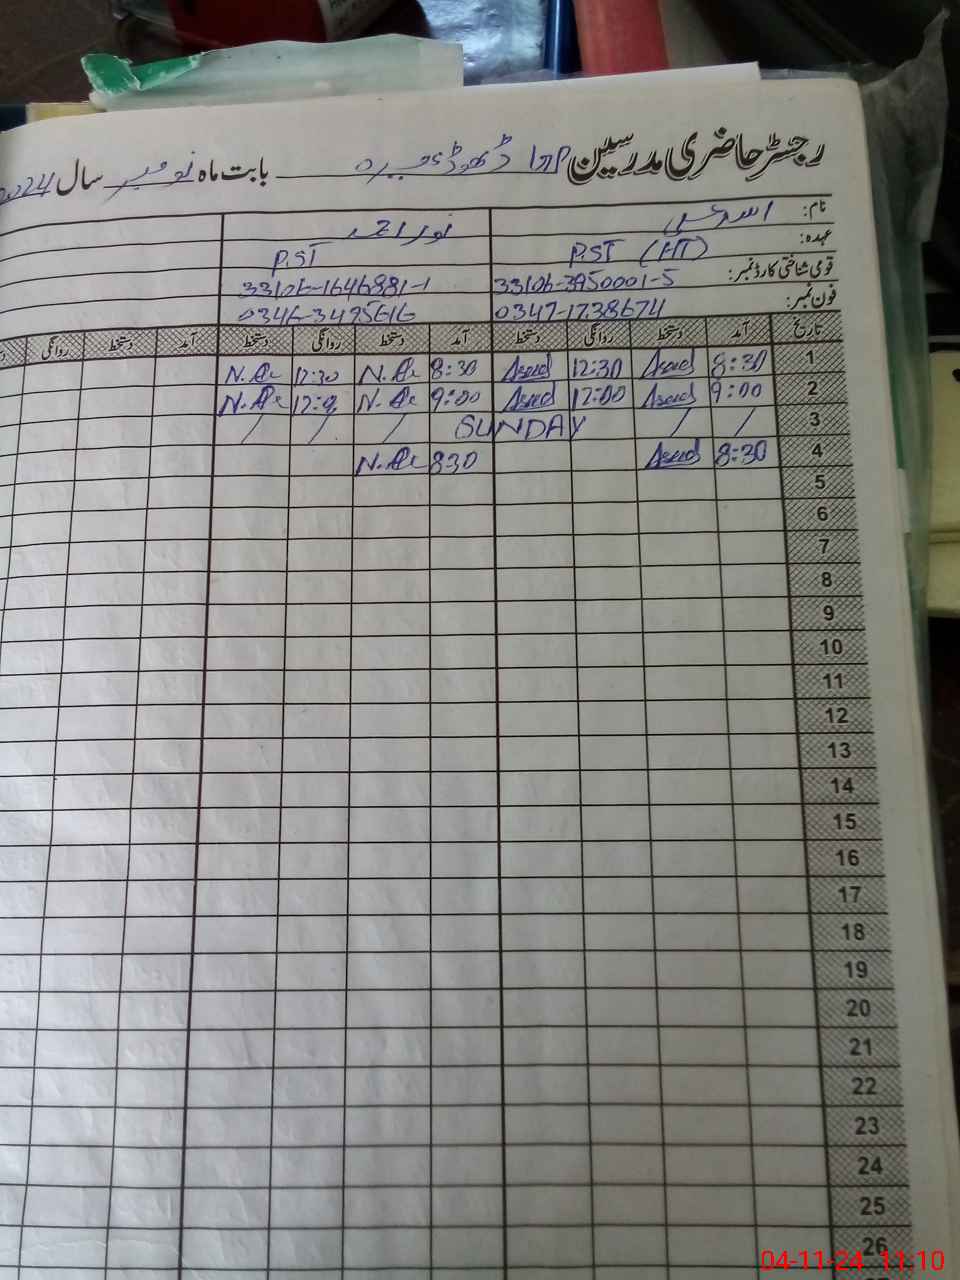 رجسٹر حاضری مدرسین بابت ماہ نومبر سال 2024
نام: اسد علی نور احمد
عہدہ: PST (HT) P.ST
قومی شناختی کارڈ نمبر: 33106-3950001-5 33106-1646881-1
فون نمبر: 0347-1738674 0346-3495616
تاریخ آمد دستخط روانگی دستخط آمد دستخط روانگی دستخط آمد دستخط روانگی
1 8:30 Asad 12:30 Asad 8:30 12:30
2 9:00 Asad 12:00 Asad 9:00
3 / / SUNDAY / / /
4 8:30 Asad 830
5
6
7
8
9
10
11
12
13
14
15
16
17
18
19
20
21
22
23
24
25
26
04-11-24 11:10